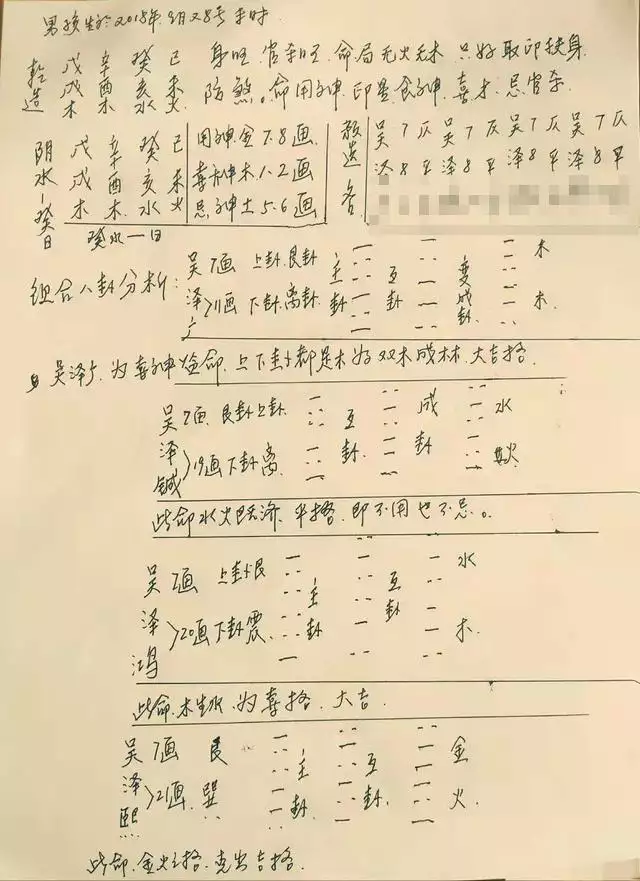 男孩生于2018年9月28号未时
乾 戊 辛 癸 己 身旺 官杀旺 命局无火无木 只好取印扶身
造 戌 酉 亥 未 防煞。命用神 印星食神 喜才 忌官杀
木 木 水 火
阴 戊 辛 癸 己 用神金7.8画 吴7 吴7 吴7 吴7
水 戌 酉 亥 未 喜神木1.2画 泽8平 泽8平 泽8平 泽8平
癸 木 木 水 火 忌神土5.6画 名
日 癸水一日
组合八卦分析: 吴7画 上卦艮卦 主 互 变 木
泽 11画 下卦离卦 卦 卦 成 木
广 卦
吴泽广 为喜神 命 上下卦都是木 好双木成林 大吉格
吴7画 艮卦上卦 互 成 水
泽 19画下卦离 卦 卦 火
铖
此命水火既济 平格 即不用也不忌。
吴7画 上卦艮 主 互 水
泽 20画下卦震 卦 卦 木
鸿
此命 木生水 为喜格 大吉
吴7画 艮 主 互 金
泽 21画 巽 卦 卦 火
熙
此命 金火之格 克出吉格